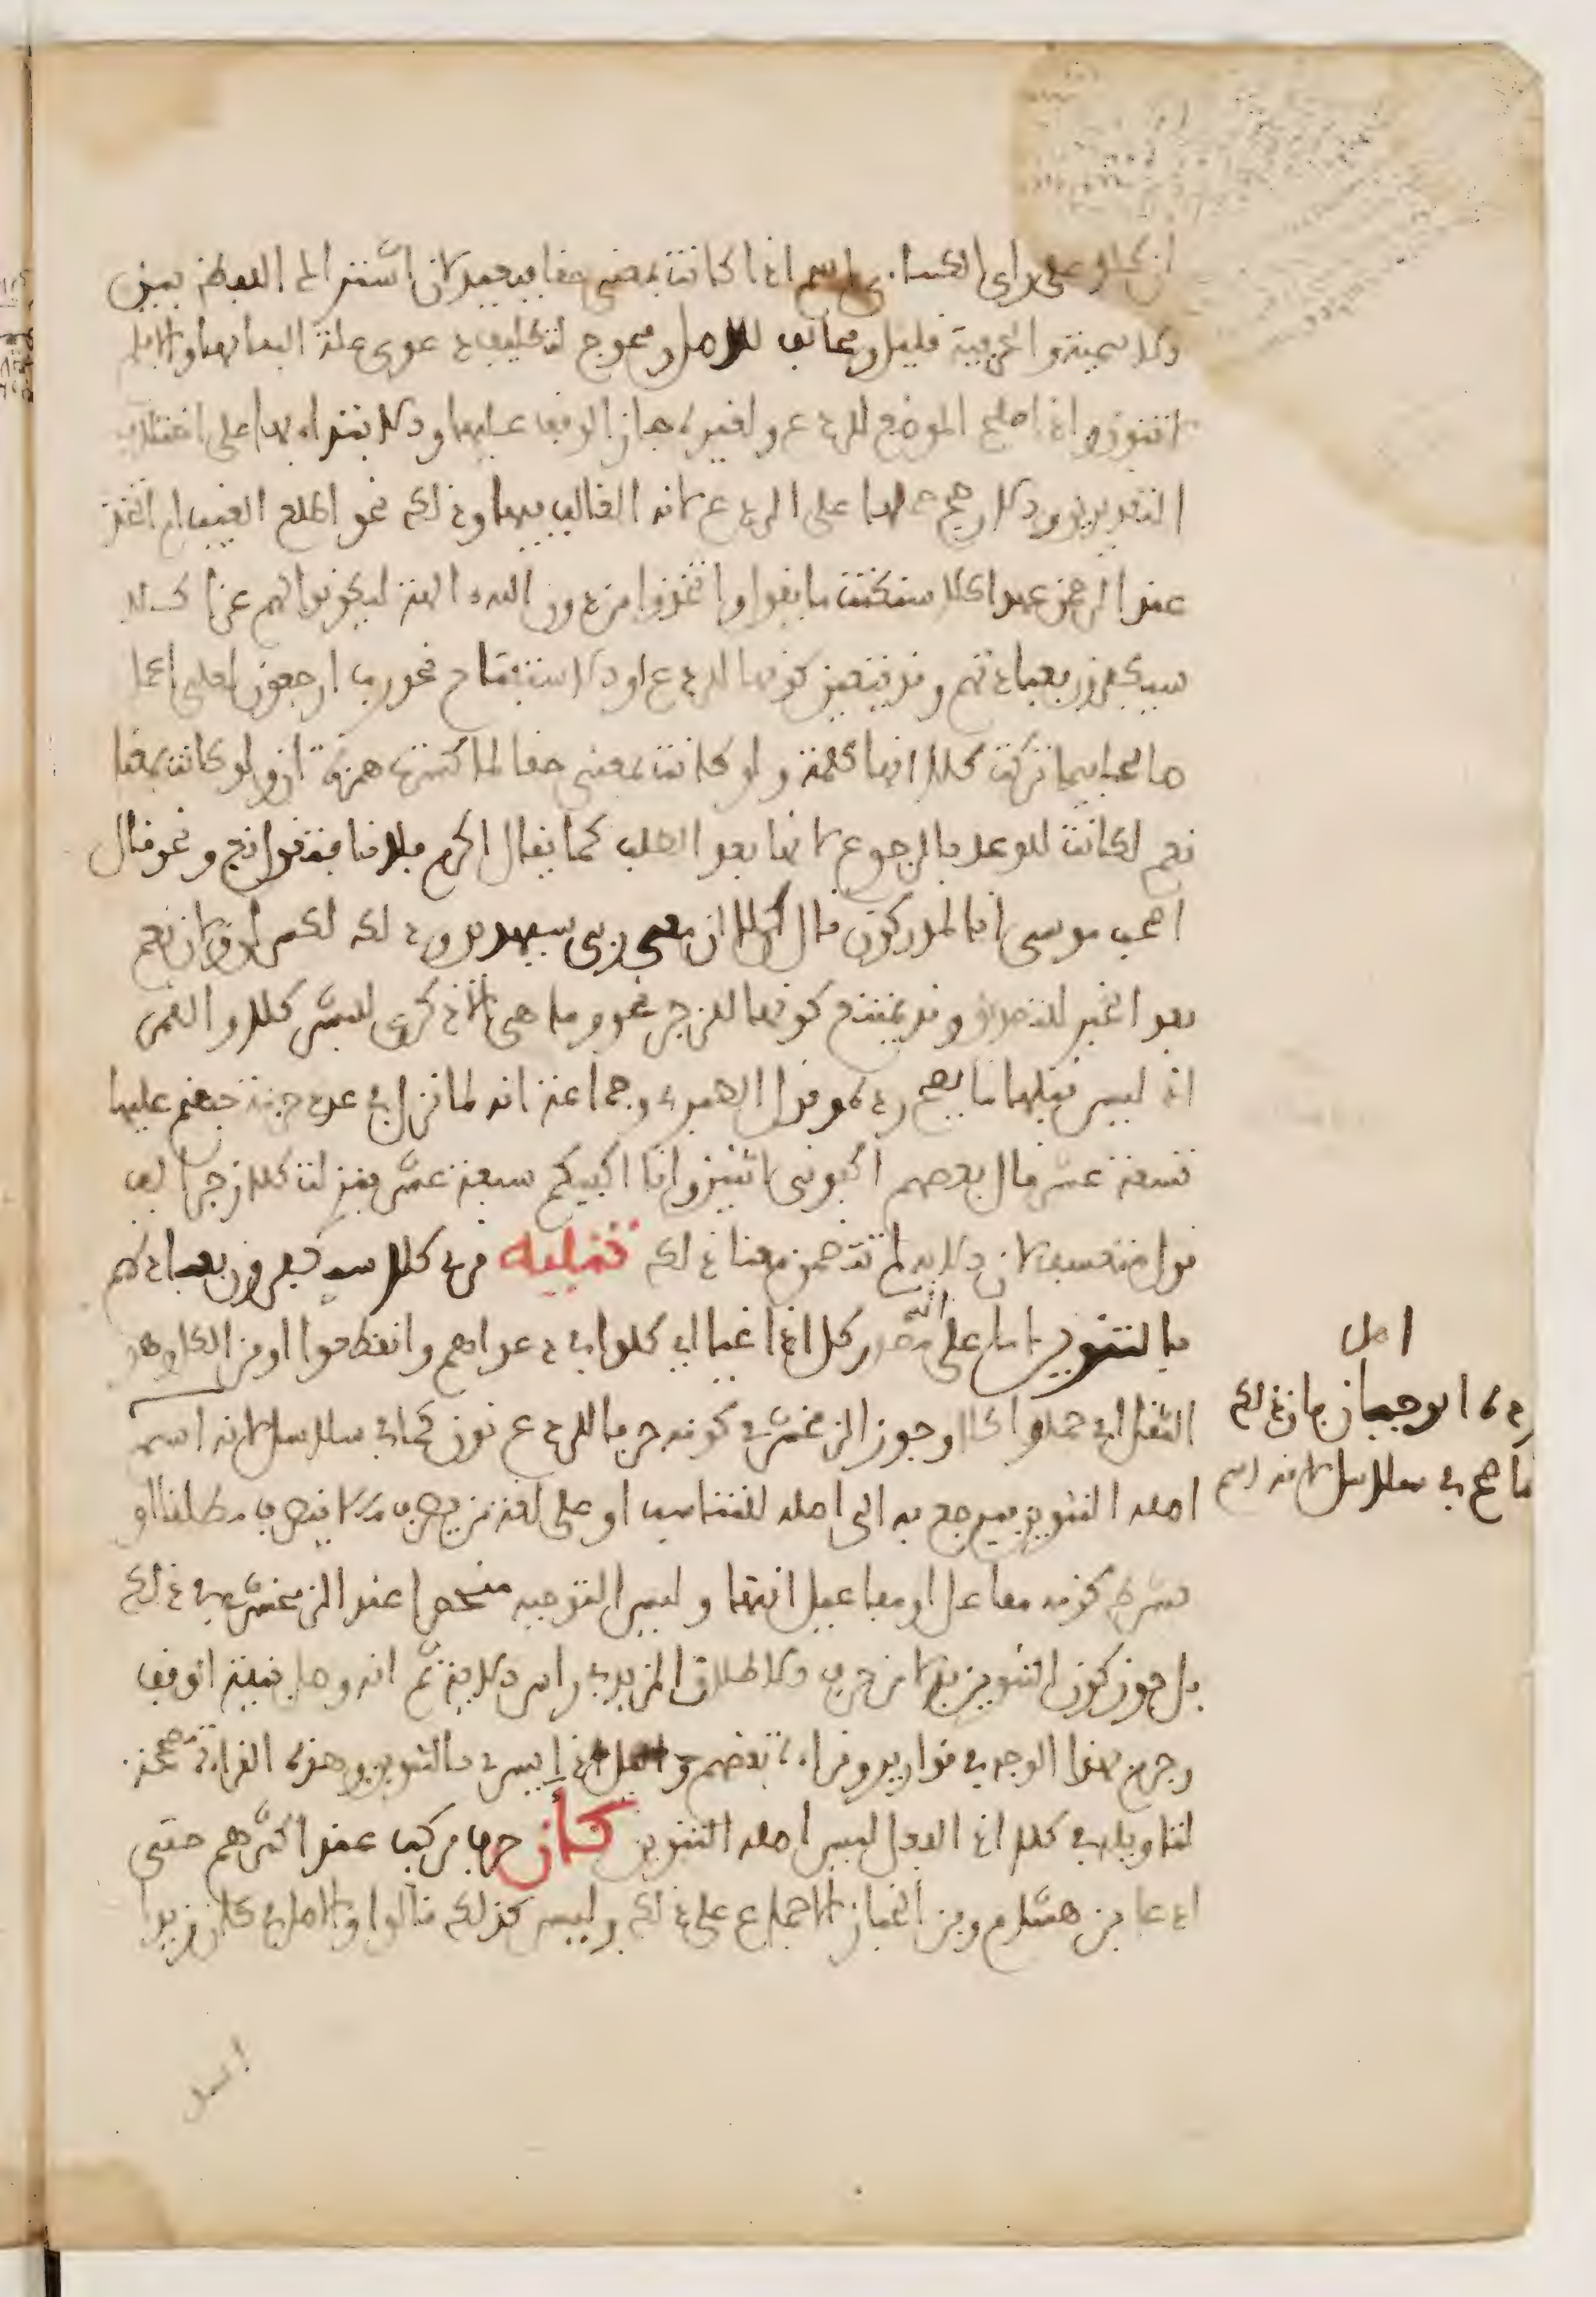 ان كلا على راى الكساءى اسم اذا كانت بمعنى حقا فبعيد لان اشتراك اللفظة بين
الاسمية والحرفية قليل ومخالف للاصل ومحوج لتكلف دعوى علة البنايها والا فلم
لا تنون واذا صلح الموضع للردع ولغيره جاز الوقف عليها والابتداء بها على اختلاف
التقديرين والارجح حملها على الردع لانه الغالب فيها وذلك نحو اطلع الغيب ام اتخذ
عند الرحمن عهدا كلا سنكتب ما يقول واتخذوا من دون الله ءالهة ليكونوا لهم عزا كلا
سيكفرون بعبادتهم وقد تتعين كونها للردع او الاستفتاح نحو رب ارجعون لعلى اعمل
صالحا فيما تركت كلا انها كلمة ولو كانت بمعنى حقا لما كسرت همزة ان ولو كانت بمعنا
نعم لكانت للوعد بالرجوع لانها بعد الطلب كما يقال اكرم فلانا فتقول نعم ونحو قال
اصحب موسى انا لمدركون قال كلا ان معى ربى سيهدين وذلك لكسر ان ولان نعم
بعد الخبر للتصديق وقد يمتنع كونها للزجر نحو وما هى الا ذكرى للبشر كلا والقمر
اذ ليس قبلها ما يصح رده وقول الطبرى وجماعة انه لما نزل فى عدد خزنة جهنم عليها
تسعة عشر قال بعضهم اكفونى اثنين وانا اكفيكم سبعة عشر فنزلت كلا زجرا له
قول متعسف لان الاية لم تتضمن معنا ذلك تنبيه قرئ كلا سيكفرون بعبادتهم
بالتنوين اما على انه مصدر كل اذا اعيا اى كلوا فى دعواهم وانقطعوا او من الكل وهو
الثقل اى حملوا كلا وجوز الزمخشرى كونه حرفا للردع نون كما فى سلاسلا لانه اسم
اصله التنوين فرجع به الى اصله للتناسب او على لغة من يصرف ما لا ينصرف مطلقا او
بشرط كونه مفاعل او مفاعيل انتها وليس التوجيه منحصرا عند الزمخشرى فى ذلك
بل جوز كون التنوين بدلا من حرف الاطلاق المزيد فى راس الاية ثم انه وصل بنية الوقف
وجزم بهذا الوجه فى قواريرا وقراءة بعضهم واليل اذا يسر بالتنوين وهذه القراءة مصححة
لتاويله فى كلا اذ الفعل ليس اصله التنوين كأن حرف مركب عند اكثرهم حتى
ادعا بن هشام وبن الخباز الاجماع على ذلك وليس كذلك قالوا والاصل فى كان زيدا
اصل
رده ابو حيان بان ذلك
انما صح فى سلاسلا لانه اسم
اسد